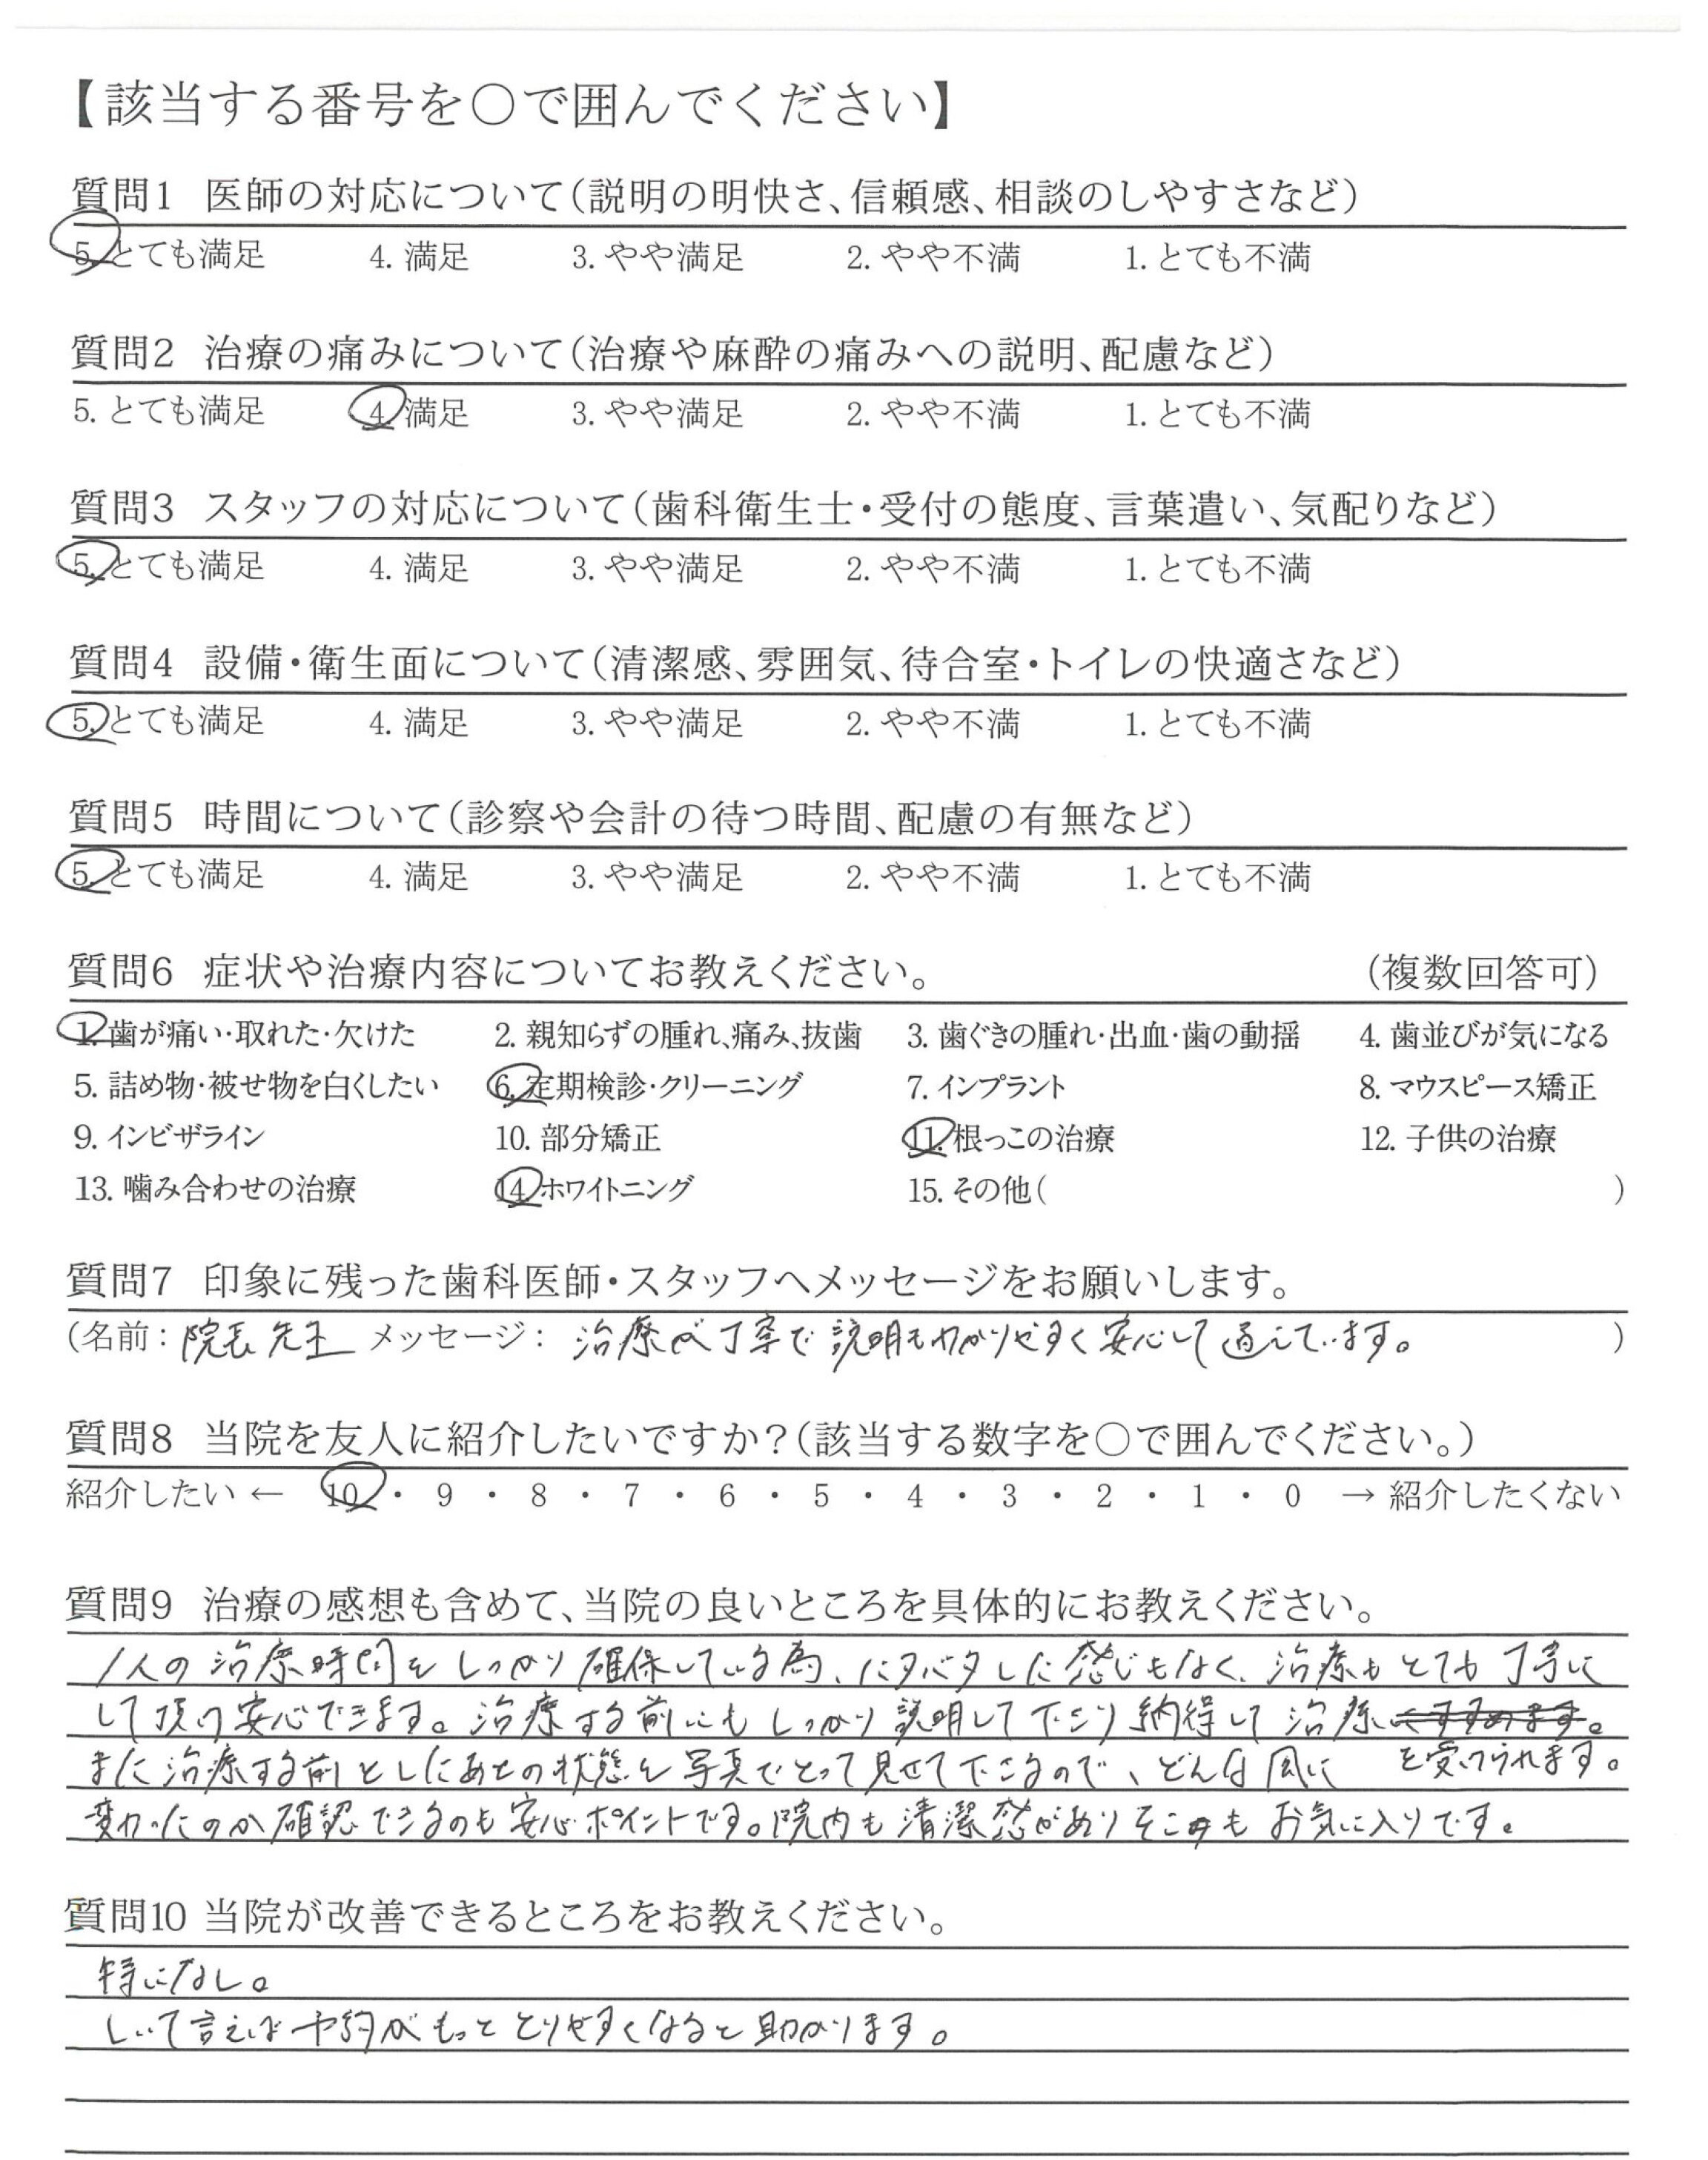 【該当する番号を〇で囲んでください】
質問1 医師の対応について(説明の明快さ、信頼感、相談のしやすさなど)
5. とても満足 4. 満足 3. やや満足 2. やや不満 1. とても不満
質問2 治療の痛みについて(治療や麻酔の痛みへの説明、配慮など)
5. とても満足 4. 満足 3. やや満足 2. やや不満 1. とても不満
質問3 スタッフの対応について(歯科衛生士・受付の態度、言葉遣い、気配りなど)
5. とても満足 4. 満足 3. やや満足 2. やや不満 1. とても不満
質問4 設備・衛生面について(清潔感、雰囲気、待合室・トイレの快適さなど)
5. とても満足 4. 満足 3. やや満足 2. やや不満 1. とても不満
質問5 時間について(診察や会計の待つ時間、配慮の有無など)
5. とても満足 4. 満足 3. やや満足 2. やや不満 1. とても不満
質問6 症状や治療内容についてお教えください。 (複数回答可)
1. 歯が痛い・取れた・欠けた 2. 親知らずの腫れ、痛み、抜歯 3. 歯ぐきの腫れ・出血・歯の動揺 4. 歯並びが気になる
5. 詰め物・被せ物を白くしたい 6. 定期検診・クリーニング 7. インプラント 8. マウスピース矯正
9. インビザライン 10. 部分矯正 11. 根っこの治療 12. 子供の治療
13. 噛み合わせの治療 14. ホワイトニング 15. その他( )
質問7 印象に残った歯科医師・スタッフへメッセージをお願いします。
(名前: 院長先生 メッセージ: 治療が丁寧で説明もわかりやすく安心して通えています。 )
質問8 当院を友人に紹介したいですか?(該当する数字を〇で囲んでください。)
紹介したい ← 10 ・ 9 ・ 8 ・ 7 ・ 6 ・ 5 ・ 4 ・ 3 ・ 2 ・ 1 ・ 0 → 紹介したくない
質問9 治療の感想も含めて、当院の良いところを具体的にお教えください。
1人の治療時間をしっかり確保している為、バタバタした感じもなく、治療もとても丁寧に
して頂け安心できます。治療する前にもしっかり説明して下さり納得して治療にすすめます。
また治療する前としたあとの状態を写真でとって見せて下さるので、どんな風に を受けられます。
変わったのか確認できるのも安心ポイントです。院内も清潔感がありそこもお気に入りです。
質問10 当院が改善できるところをお教えください。
特になし。
しいて言えば予約がもっととりやすくなると助かります。